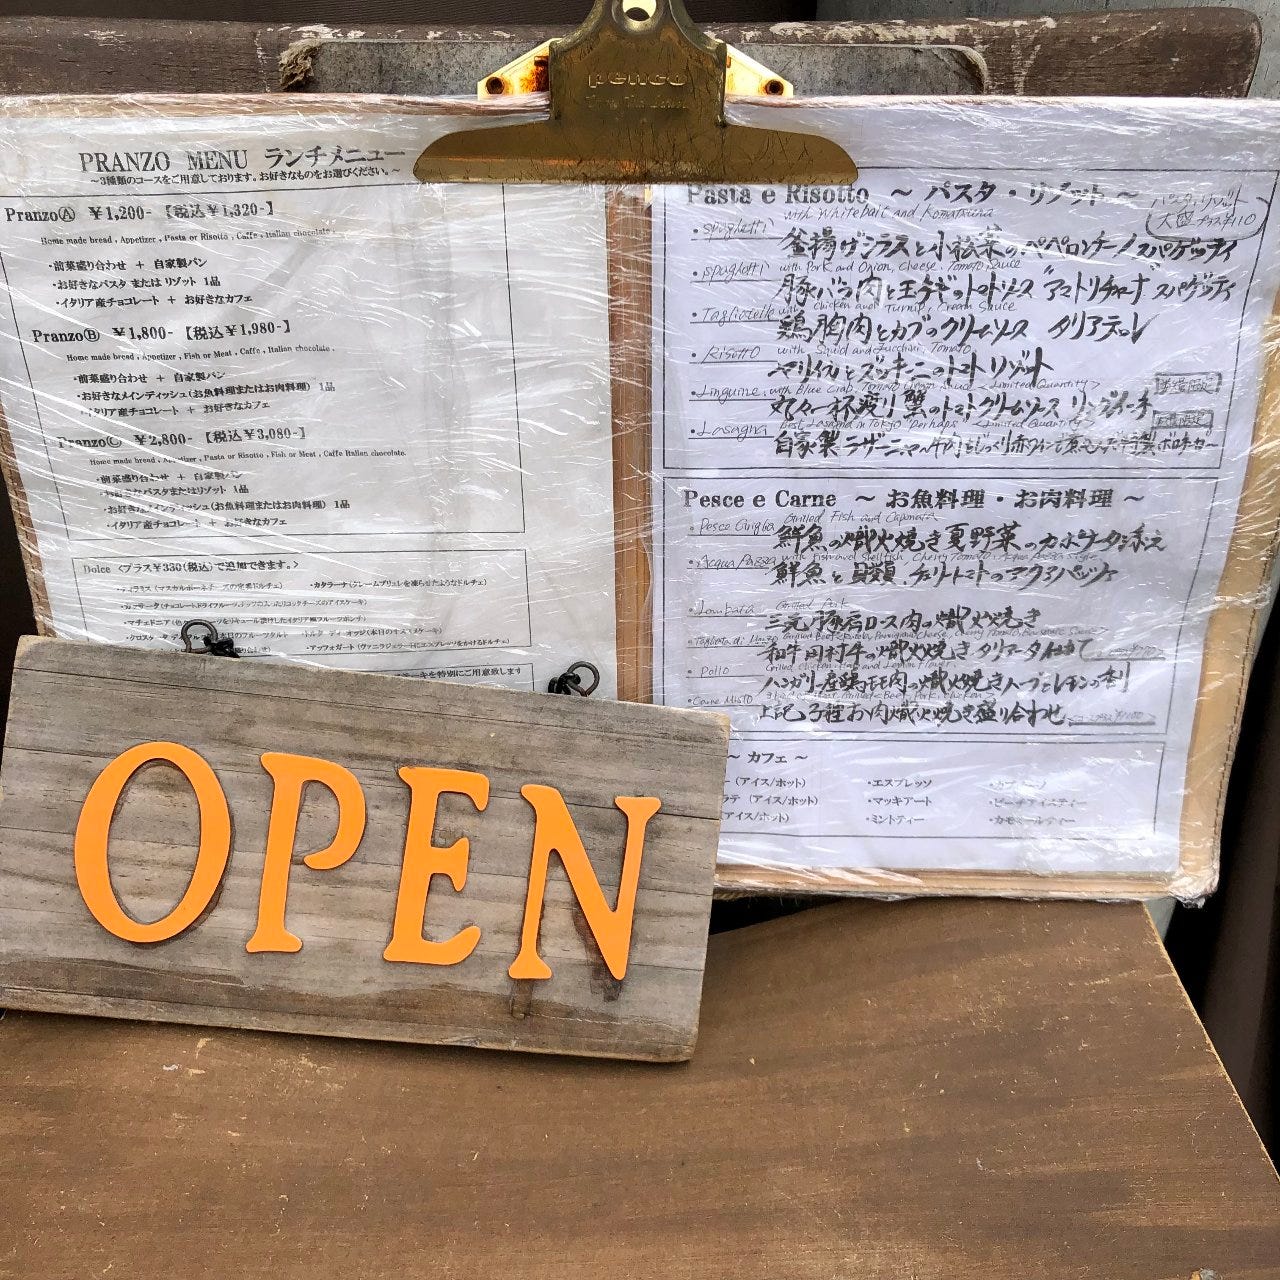 penco
PRANZO MENU ランチメニュー
～3種類のコースをご用意しております。お好きなものをお選びください。～
PranzoⒶ ￥1,200-【税込￥1,320-】
Home made bread , Appetizer , Pasta or Risotto , Caffe , Italian chocolate .
・前菜盛り合わせ + 自家製パン
・お好きなパスタ または リゾット 1品
・イタリア産チョコレート + お好きなカフェ
PranzoⒷ ￥1,800-【税込￥1,980-】
Home made bread , Appetizer , Fish or Meat , Caffe , Italian chocolate .
・前菜盛り合わせ + 自家製パン
・お好きなメインディッシュ(お魚料理またはお肉料理) 1品
・イタリア産チョコレート + お好きなカフェ
PranzoⒸ ￥2,800-【税込￥3,080-】
Home made bread , Appetizer , Pasta or Risotto , Fish or Meat , Caffe Italian chocolate.
・前菜盛り合わせ + 自家製パン
・お好きなパスタまたはリゾット 1品
・お好きなメインディッシュ(お魚料理またはお肉料理) 1品
・イタリア産チョコレート + お好きなカフェ
Dolce <プラス￥330(税込)で追加できます。>
・ティラミス (マスカルポーネチーズの定番ドルチェ)
・カタラーナ(クレームブリュレを凍らせたようなドルチェ)
・カッサータ(チョコレートドライフルーツ
・マチェドニア
リキュール漬けしたイタリア風フルーツポンチ)
・クロスタータ
本日のフルーツタルト
・アッフォガート (バニラジェラートにエスプレッソをかけるドルチェ)
ケーキを特別にご用意致します
Pasta e Risotto ～ パスタ・リゾット ～
パスタ,リゾット
大盛 プラス¥110
・spaghetti with Whitebait and Komatsuna
釜揚げシラスと小松菜のペペロンチーノ スパゲッティ
・spaghetti with Pork and Onion, cheese, Tomato Sauce
豚バラ肉と玉ネギのトマトソース "アマトリチャーナ" スパゲッティ
・Tagliatelle with Chicken and Turnip, Cream Sauce
鶏胸肉とカブのクリームソース タリアテッレ
・Risotto with Squid and Zucchini, Tomato
ヤリイカとズッキーニのトマトリゾット
・Linguine with Blue Crab, Tomato Cream Sauce <Limited Quantity>
数量限定
丸々一杯渡り蟹のトマトクリームソース リングイーネ
・Lasagna Best Lasagna in Tokyo "Perhaps" <Limited Quantity>
数量限定
Pesce e Carne ～ お魚料理・お肉料理 ～
・Pesce Griglia Grilled Fish and Caponata
鮮魚の熾火焼き 夏野菜のカポナータ添え
・Acqua Pazza with Fish and Shellfish, Cherry Tomato,
鮮魚と貝類、チェリートマトのアクアパッツァ
・Lombata Grilled Pork
三元豚肩ロース肉の熾火焼き
・Tagliata di Manzo
和牛 田村牛の熾火焼き タリアータ仕立て
・Pollo
ハンガリー産鶏モモ肉の熾火焼き ハーブとレモンの香り
・Carne Misto
上記3種お肉熾火焼き盛り合わせ
～ カフェ ～
(アイス/ホット) ・エスプレッソ ・カプチーノ
ラテ (アイス/ホット) ・マッキアート ・ピーチアイスティー
(アイス/ホット) ・ミントティー ・カモミールティー
OPEN